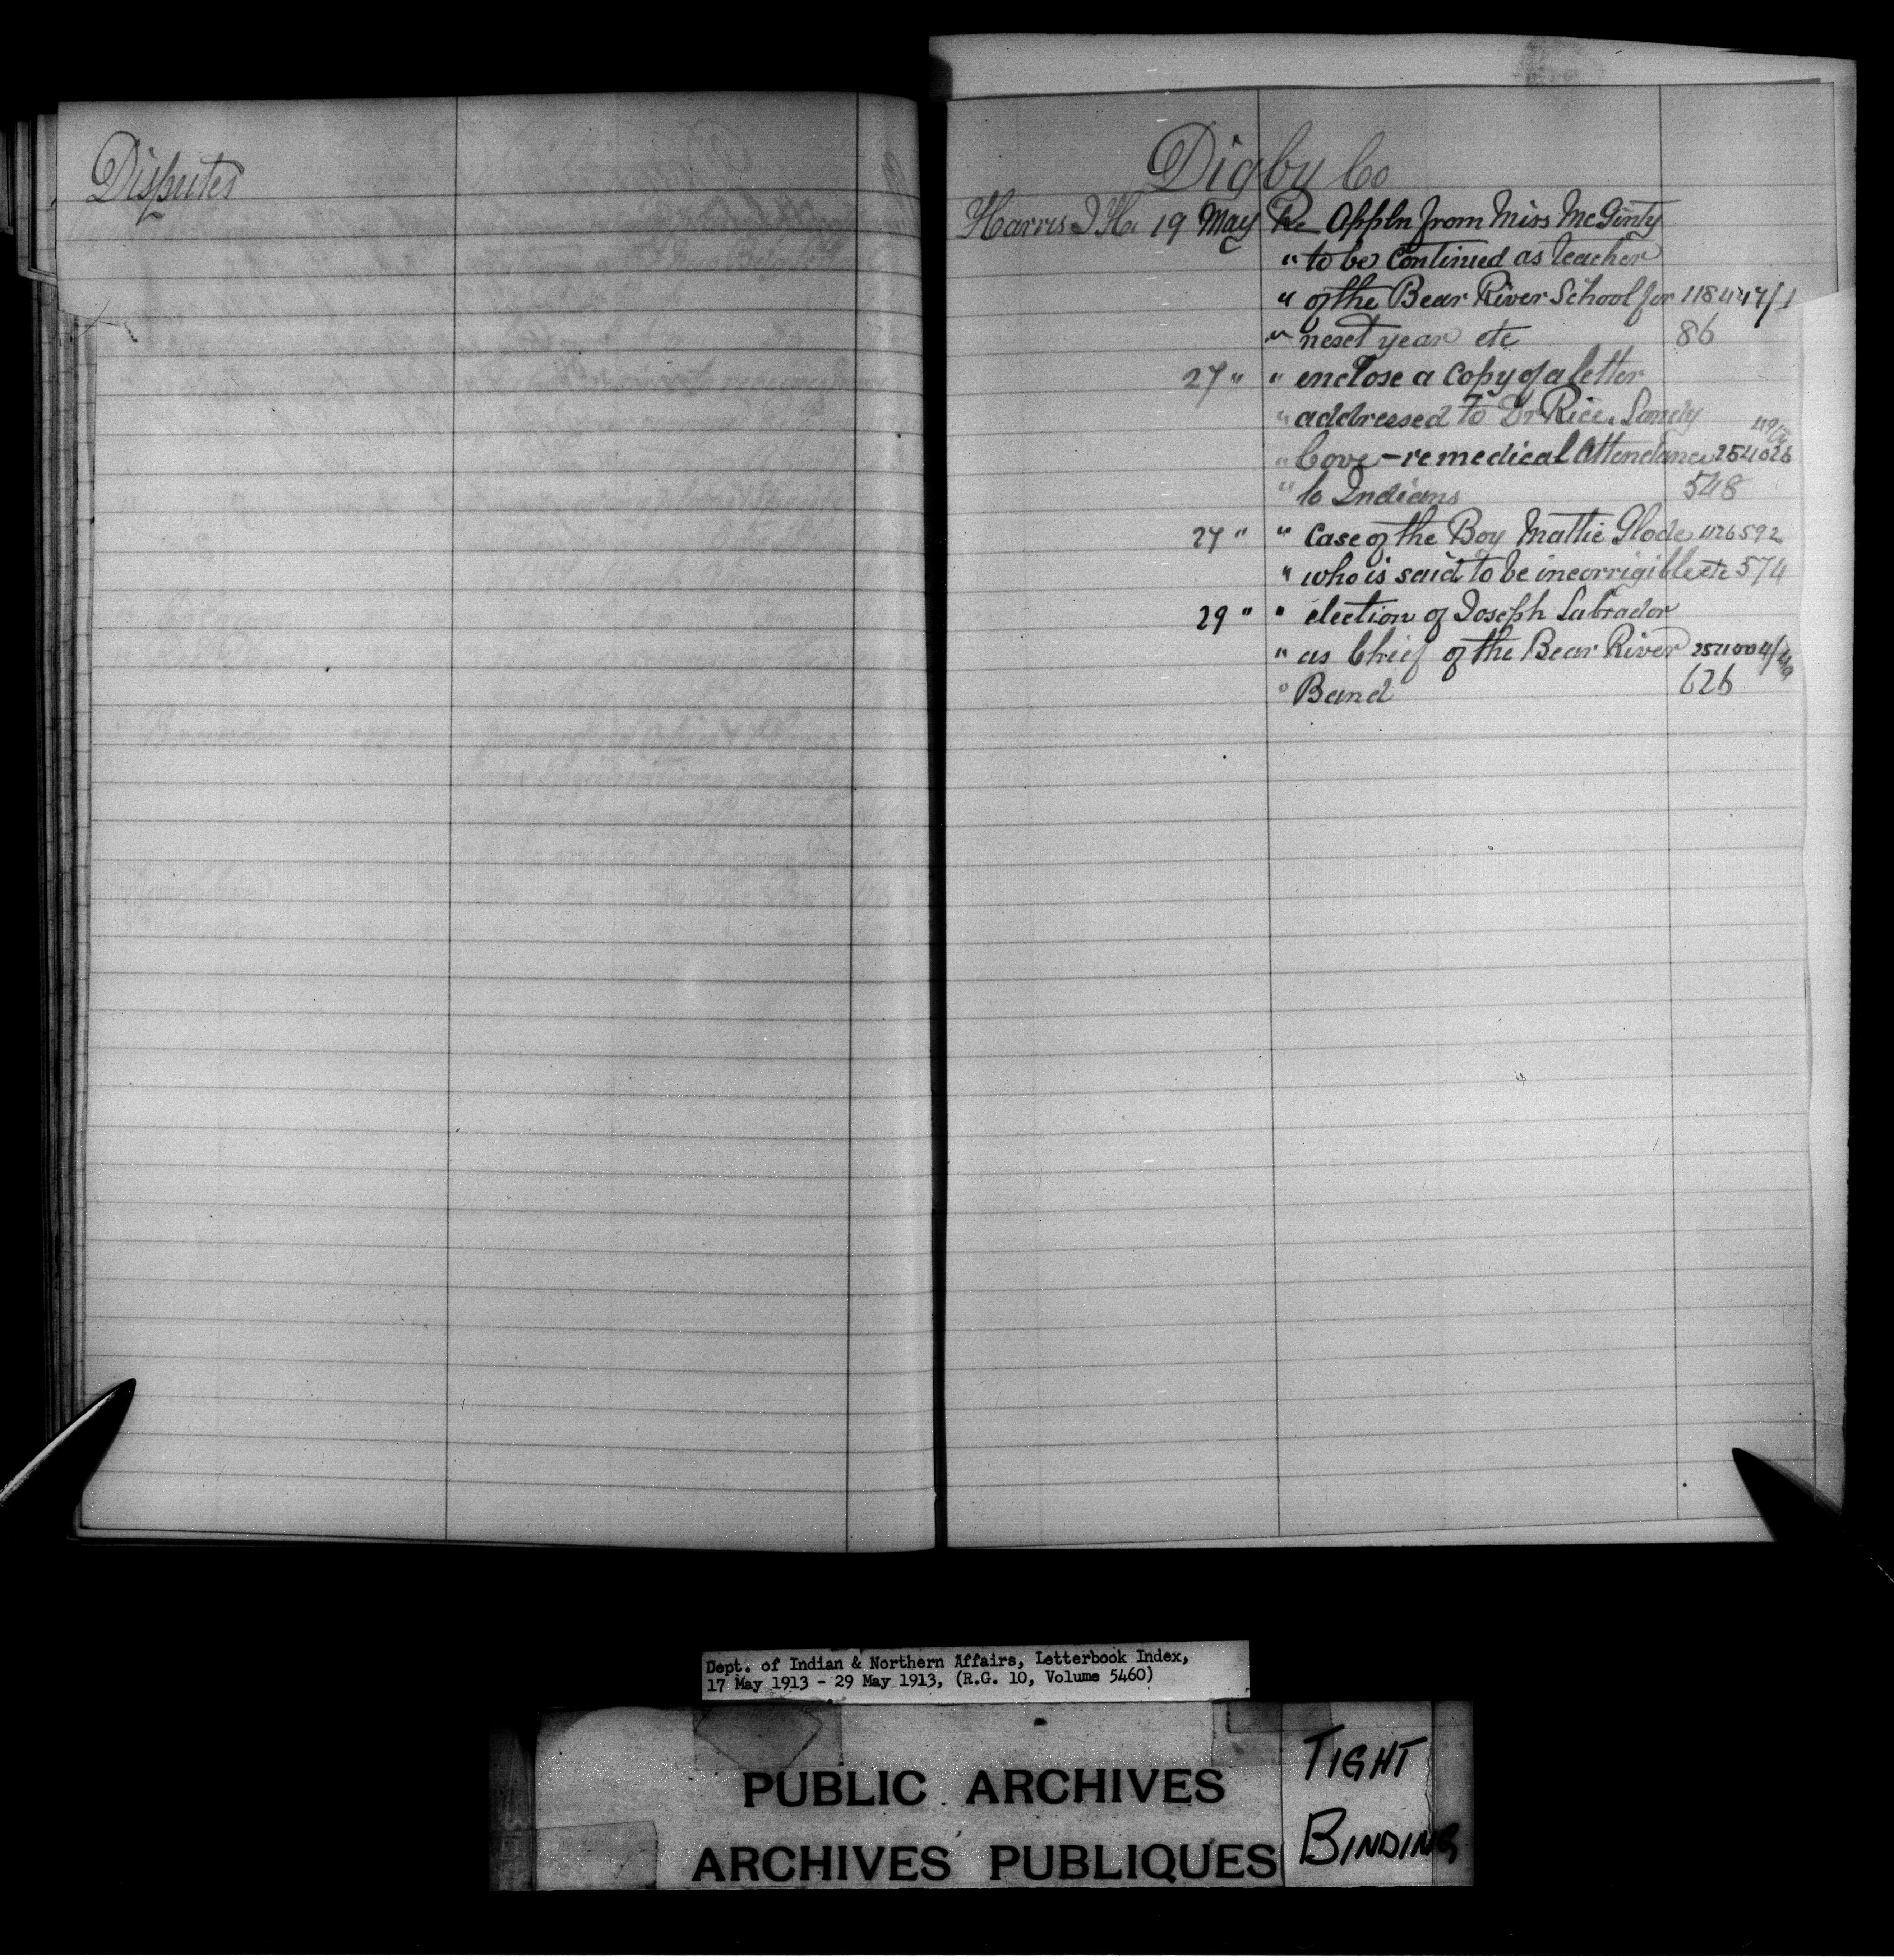 Disputes
Digby Co
Harris J H. 19 May Re Appln from Miss McGinty
" to be continued as teacher
" of the Bear River School for 118447/1
" next year etc 86
27 " " enclose a copy of a letter
" addressed to Dr Rice. Sandy
" Cove - re medical Attendance 254026
" to Indians 548
27 " " Case of the Boy Mattie Glode 426592
" who is said to be incorrigible etc 574
29 " " election of Joseph Labrador
" as Chief of the Bear River
" Band 626
Dept. of Indian & Northern Affairs, Letterbook Index,
17 May 1913 - 29 May 1913, (R.G. 10, Volume 5460)
PUBLIC ARCHIVES
ARCHIVES PUBLIQUES
TIGHT
BINDING